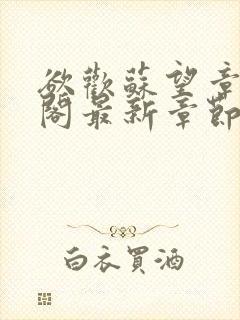 欲歡蘇望章
閣最新章節
白衣買酒